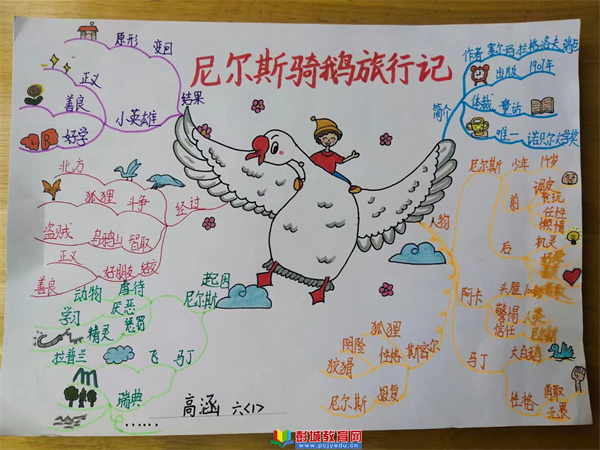 尼尔斯骑鹅旅行记
结果
变回
原形
小英雄
正义
善良
好学
简介
作者 塞尔玛·拉格洛夫 瑞典
出版 1907年
体裁 童话
唯一 诺贝尔文学奖
经过
北方
狐狸 斗争
盗贼 乌鸦山 智取
正义
善良 好朋友 结交
起因
尼尔斯
动物 虐待
学习 厌恶
精灵 惩罚
拉普兰 飞 马丁
瑞典
……
人物
尼尔斯 少年 14岁
前
调皮
贪玩
任性
懒惰
后
机灵
阿卡 头雁
警惕 人类
信任
马丁 大白鹅
性格 勇敢
狐狸 斯密尔
性格
阴险
狡猾
尼尔斯 报复
高涵 六〈1〉
彭城教育网
www.pcjyedu.cn